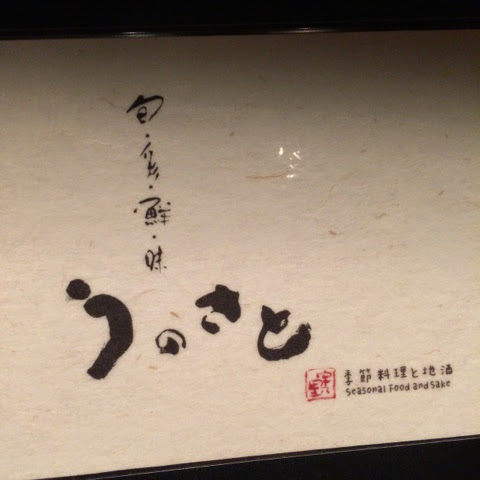 旬・彩・鮮・味
うのさと
季節料理と地酒
Seasonal Food and Sake